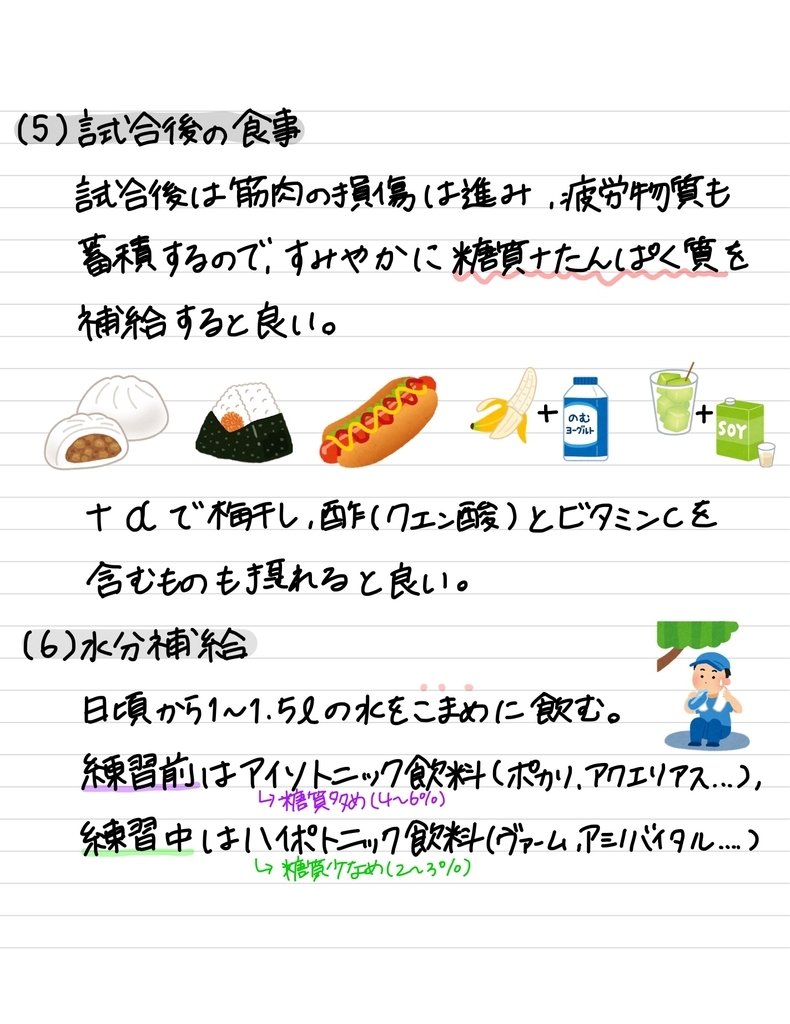 (5)試合後の食事
試合後は筋肉の損傷は進み,疲労物質も
蓄積するので,すみやかに糖質+たんぱく質を
補給すると良い。
+
のむ
ヨーグルト
+
SOY
+αで梅干し,酢(クエン酸)とビタミンCを
含むものも摂れると良い。
(6)水分補給
日頃から1〜1.5ℓの水をこまめに飲む。
練習前はアイソトニック飲料(ポカリ,アクエリアス...),
↳糖質多め(4〜6%)
練習中はハイポトニック飲料(ヴァーム,アミノバイタル....)
↳糖質少なめ(2〜3%)